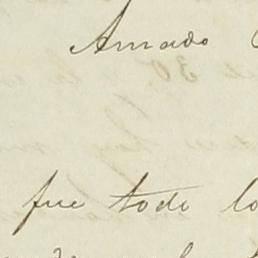 Amado
fue todo lo